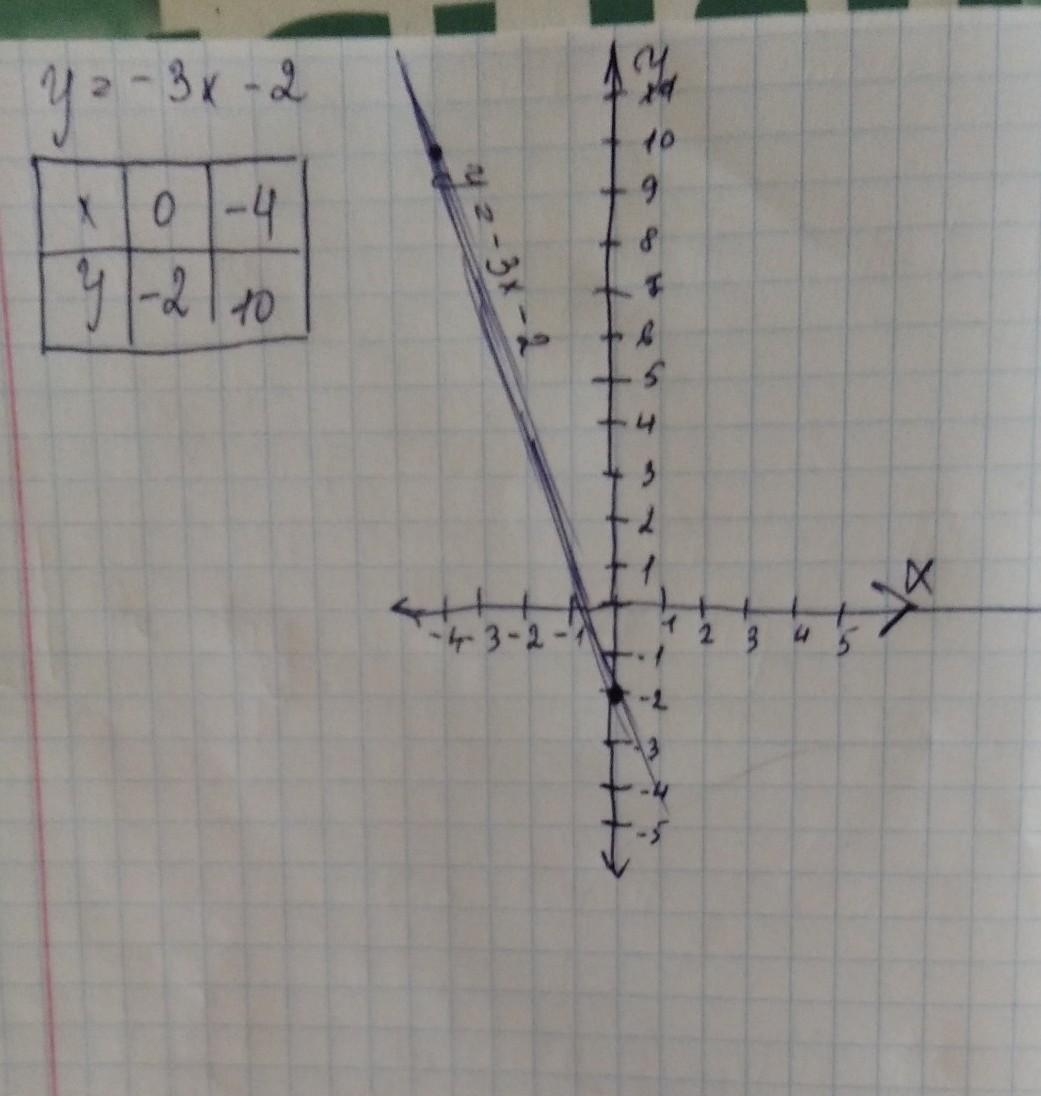 y = -3x - 2
x 0 -4
y -2 10
y
11
10
9
8
7
6
5
4
3
2
1
y = -3x - 2
x
-4 -3 -2 -1 1 2 3 4 5
-1
-2
-3
-4
-5